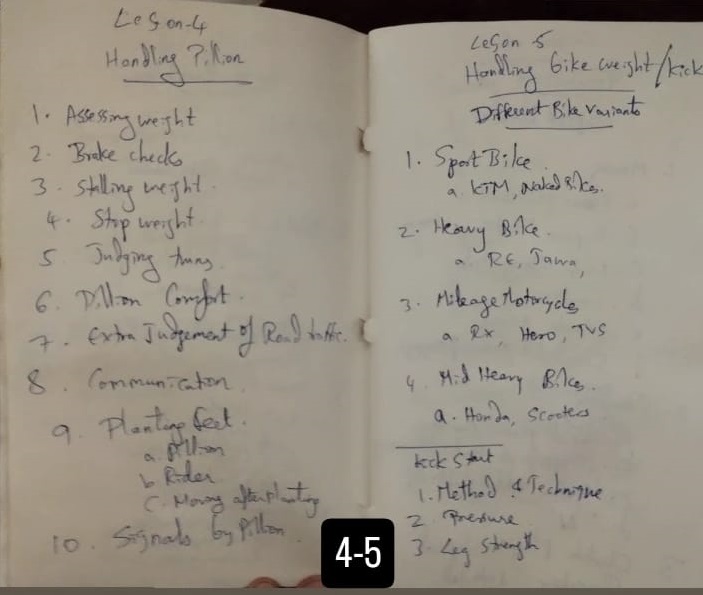 Leson-4
Handling Pillion
1. Assessing weight
2. Brake checks
3. Stalling weight.
4. Stop weight.
5 Judging turns
6. Pillion Comfort.
7. Extra Judgement of Road traffic.
8. Communication
9. Planting feet.
a. Pillion
b Rider
C. Moving after planting
10. Signals by Pillion.
Leson 5
Handling bike weight/kick
Different Bike Variants
1. Sport Bike
a. KTM, Naked Bikes.
2. Heavy Bike.
a RE, Jawa,
3. Mileage Motorcycles
a Rx, Hero, TVS
4 Mid Heavy Bikes.
a. Honda, Scooters
kick Start
1. Method & Technique
2 Pressure
3. Leg Strength
4-5